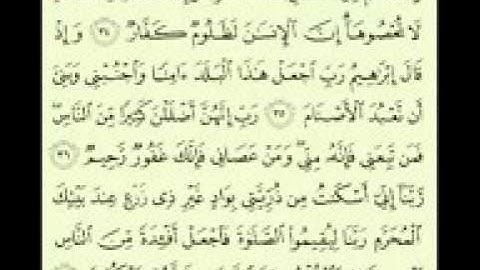 لَا تُحْصُوهَآ إِنَّ ٱلْإِنسَٰنَ لَظَلُومٌ كَفَّارٌ ٣٤ وَإِذْ
قَالَ إِبْرَٰهِيمُ رَبِّ ٱجْعَلْ هَٰذَا ٱلْبَلَدَ ءَامِنًا وَٱجْنُبْنِى وَبَنِىَّ
أَن نَّعْبُدَ ٱلْأَصْنَامَ ٣٥ رَبِّ إِنَّهُنَّ أَضْلَلْنَ كَثِيرًا مِّنَ ٱلنَّاسِ
فَمَن تَبِعَنِى فَإِنَّهُۥ مِنِّى وَمَنْ عَصَانِى فَإِنَّكَ غَفُورٌ رَّحِيمٌ ٣٦
رَّبَّنَآ إِنِّىٓ أَسْكَنتُ مِن ذُرِّيَّتِى بِوَادٍ غَيْرِ ذِى زَرْعٍ عِندَ بَيْتِكَ
ٱلْمُحَرَّمِ رَبَّنَا لِيُقِيمُوا۟ ٱلصَّلَوٰةَ فَٱجْعَلْ أَفْـِٔدَةً مِّنَ ٱلنَّاسِ